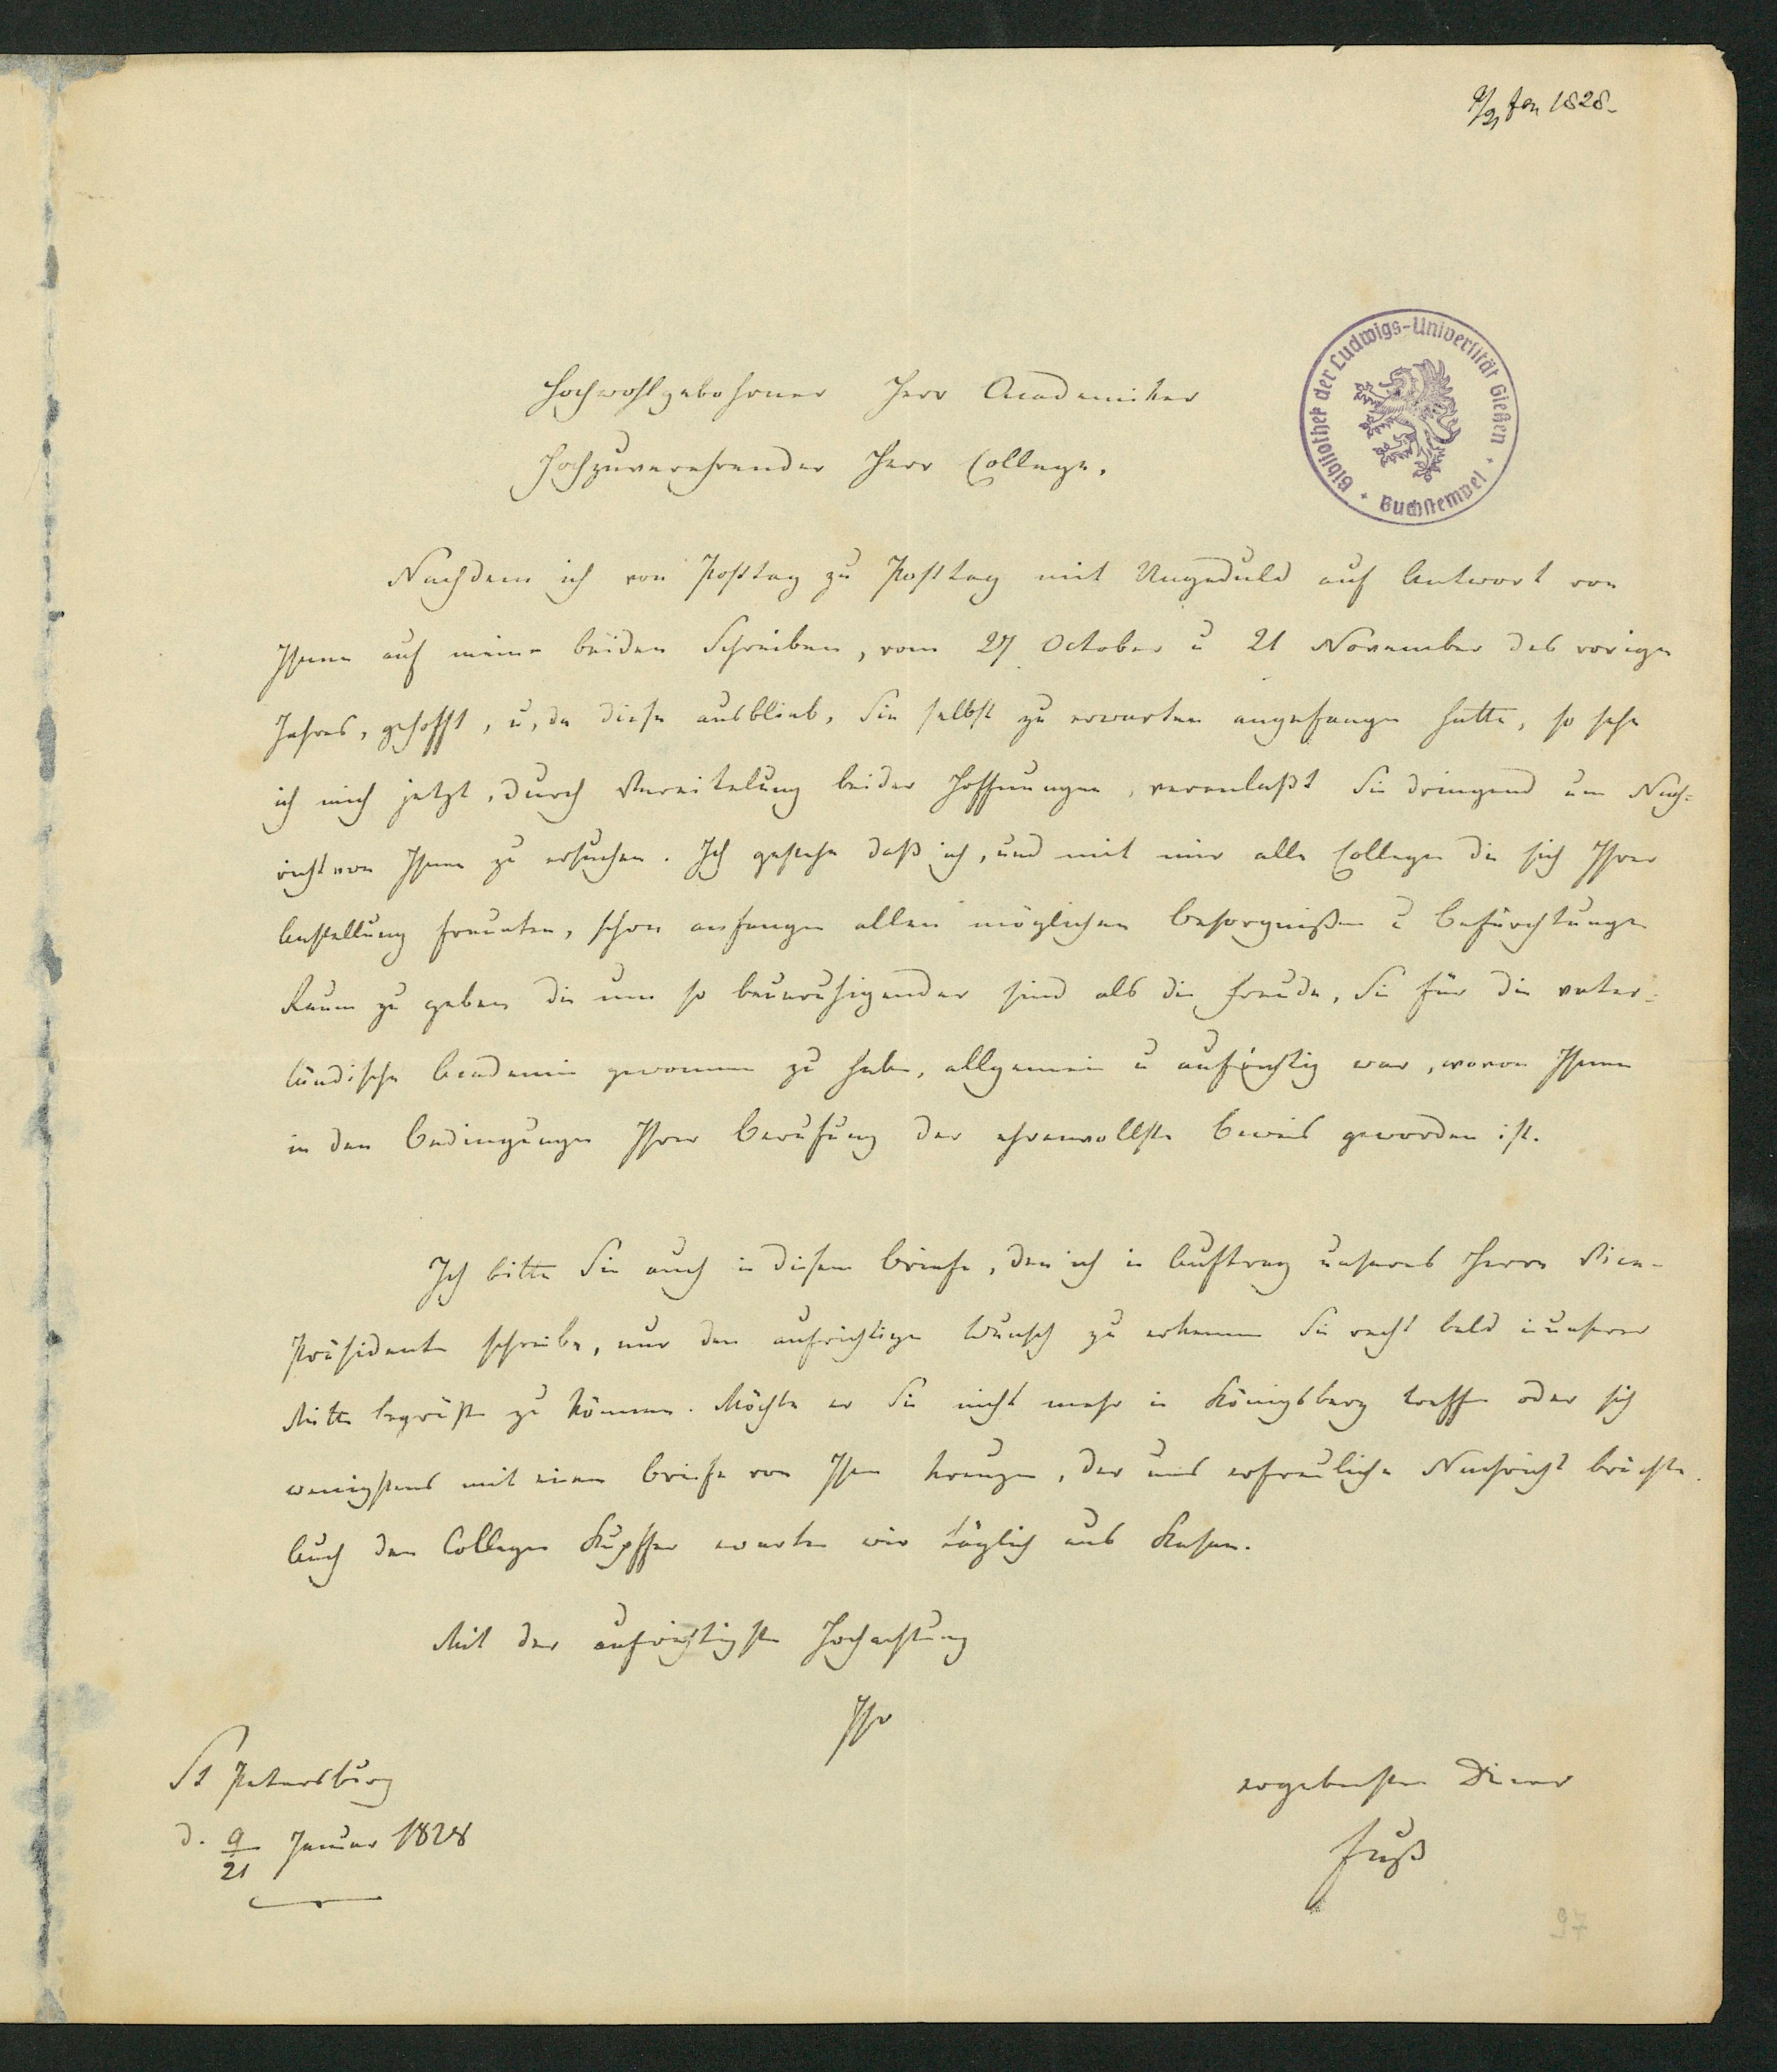 9/21 Jan 1828.
Bibliothek der Ludwigs-Universität Gießen
Buchstempel
Hochwohlgebohrner Herr Academiker
Hochzuverehrender Herr College,
Nachdem ich von Posttag zu Posttag mit Ungeduld auf Antwort von
Ihnen auf meine beiden Schreiben, vom 27 October u 21 November des vorigen
Jahres, gehofft, u, da diese ausblieb, Sie selbst zu erwarten angefangen hatte, so sehe
ich mich jetzt, durch Vereitelung beider Hoffnungen, veranlaßt Sie dringend um Nach-
richt von Ihnen zu ersuchen. Ich gestehe daß ich, und mit mir alle Collegen die sich Ihrer
Anstellung freuten, schon anfangen allen möglichen Besorgnißen u Befürchtungen
Raum zu geben die um so beunruhigender sind als die Freude, Sie für die vater-
ländische Academie gewonnen zu haben, allgemein u aufrichtig war, wovon Ihnen
in den Bedingungen Ihrer Berufung der ehrenvollste Beweis geworden ist.
Ich bitte Sie auch in diesem Briefe, den ich in Auftrag unseres Herrn Vice-
Präsidenten schreibe, nur den aufrichtigen Wunsch zu erkennen Sie recht bald in unserer
Mitte begrüßen zu können. Möchte er Sie nicht mehr in Königsberg treffen oder sich
wenigstens mit einem Briefe von Ihnen kreuzen, der uns erfreuliche Nachricht brächte.
Auch den Collegen Kupffer erwarten wir täglich aus Kasan.
Mit der aufrichtigsten Hochachtung
Ihr
St Petersburg
ergebenster Diener
d. 9/21 Januar 1828
Fuß
72